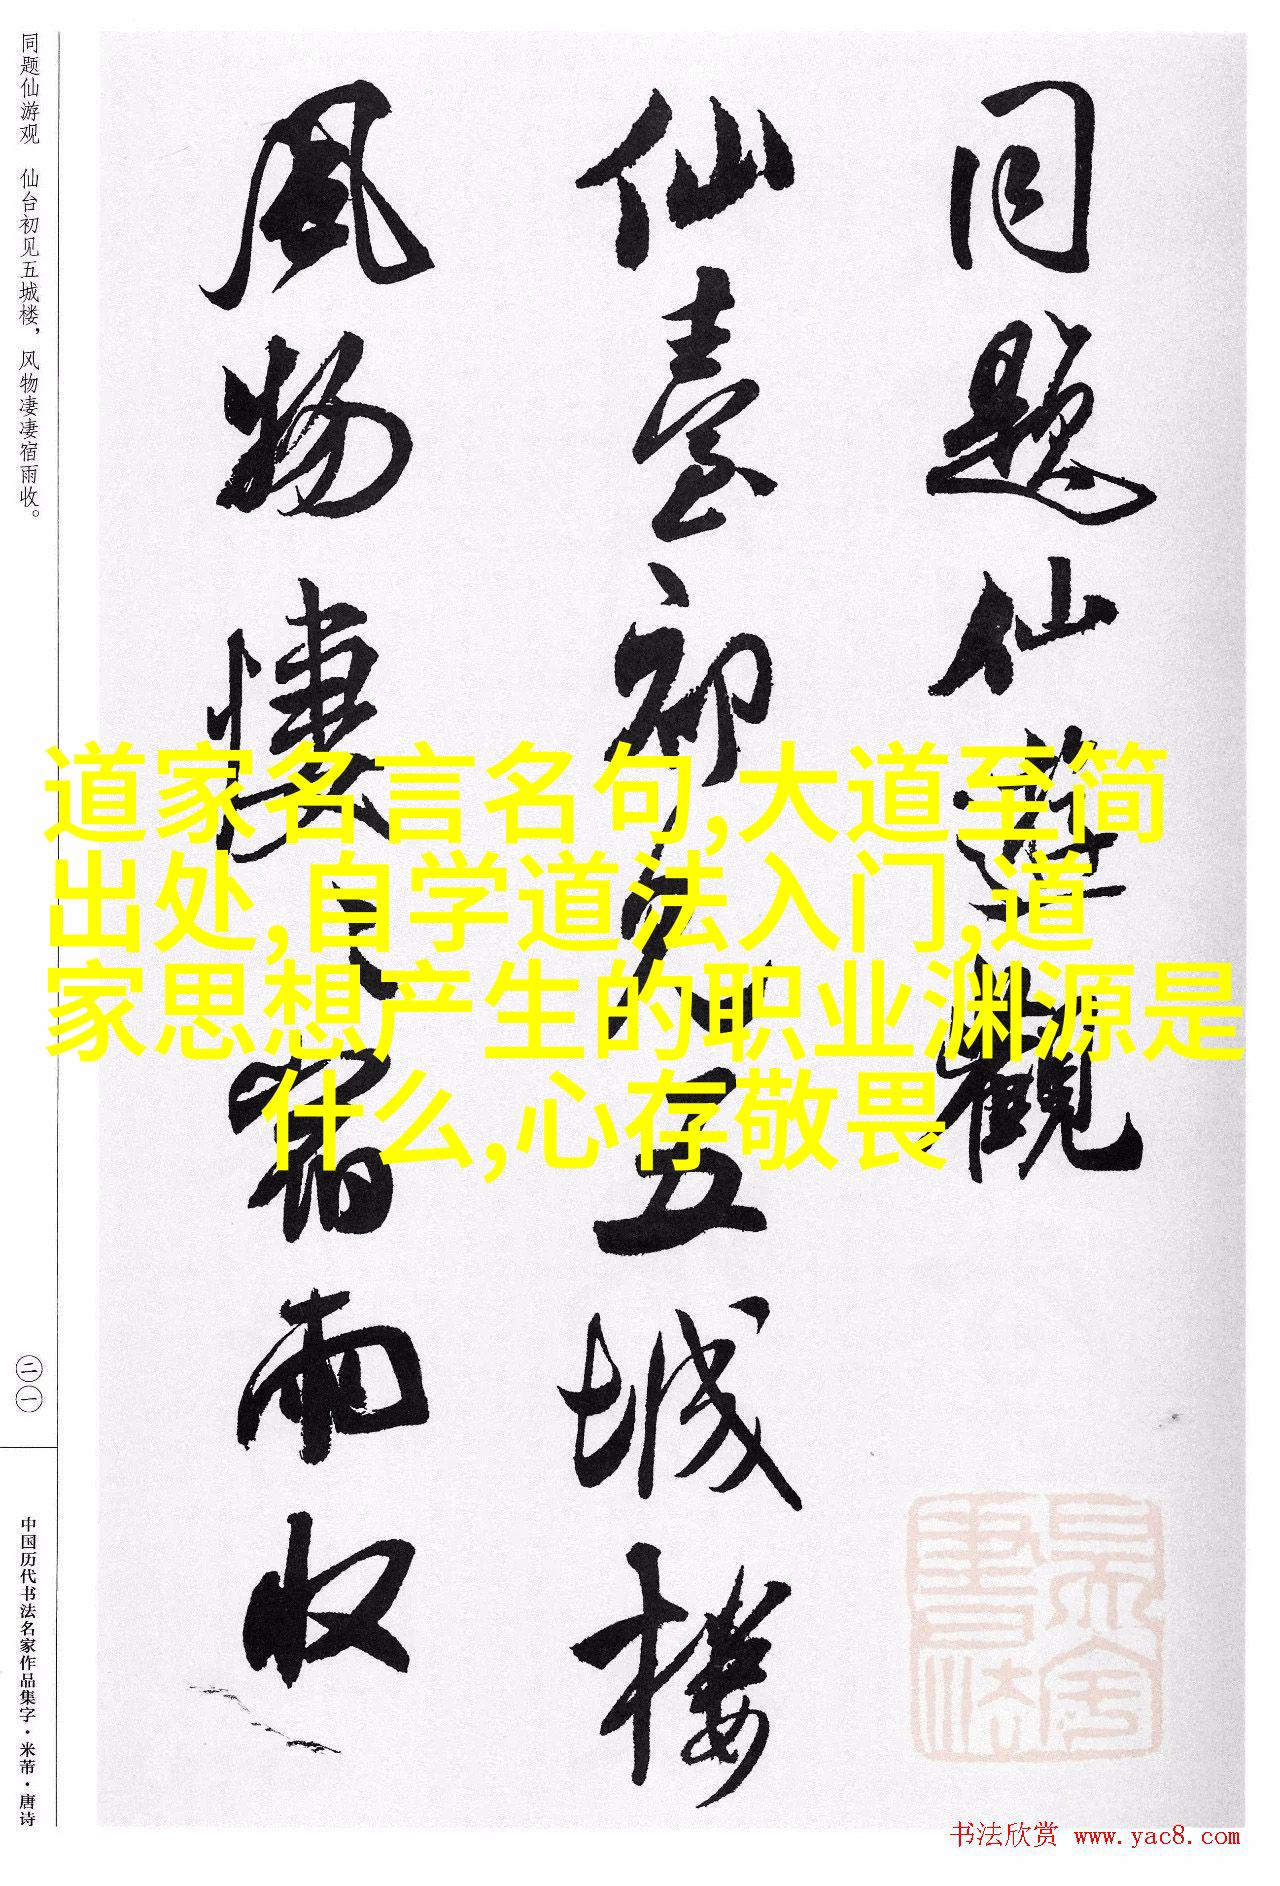 同题仙游观
仙臺初见五城楼
风物凄凄宿雨收
同题仙游观 仙台初见五城楼，风物凄凄宿雨收。
二一
中国历代书法名家作品集字·米芾·唐诗
道家名言名句,大道至简
出处,自学道法入门,道
家思想产生的职业渊源是
什么,心存敬畏
书法欣赏 www.yac8.com